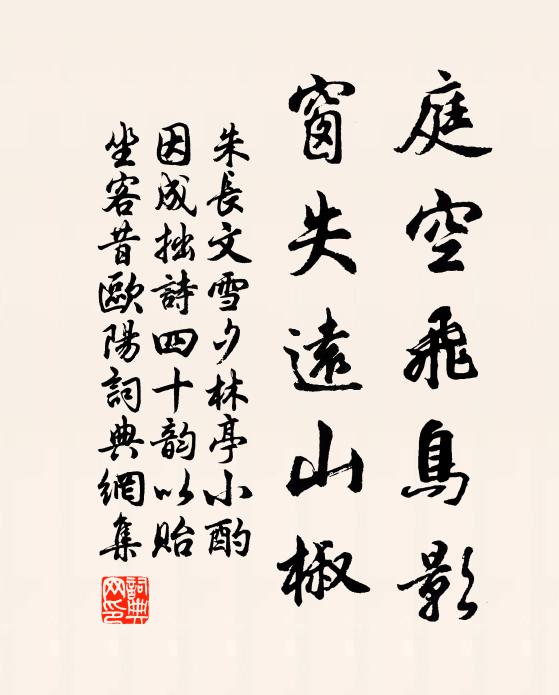 庭空飛鳥影
窗失遠山椒
朱長文雪夕林亭小酌
因成拙詩四十韵以貽
坐客昔歐陽詞典網集
詞典
网印